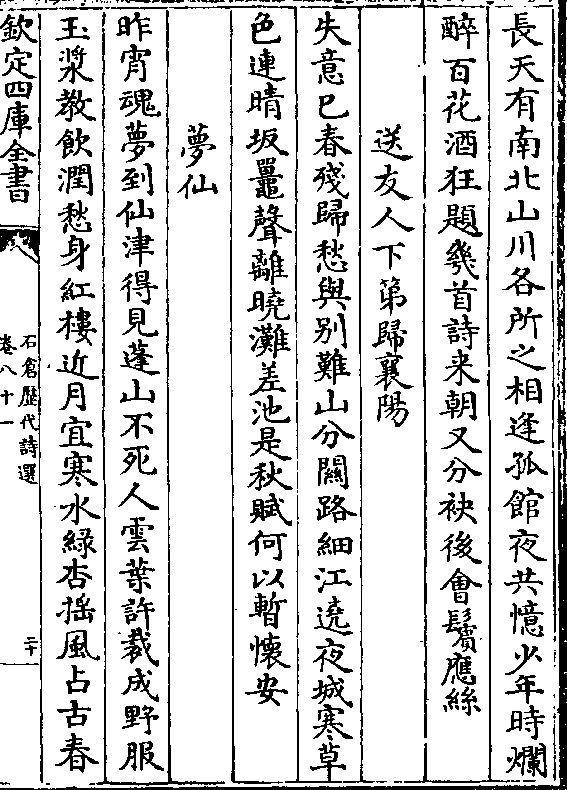 長天有南北山川各所之相逢孤館夜共憶少年時爛
醉百花酒狂題幾首詩来朝又分袂後會鬢應絲
送友人下第歸襄陽
失意已春殘歸愁與别難山分闗路細江遶夜城寒草
色連晴坂鼉聲離曉灘差池是秋賦何以暫懷安
夢仙
昨宵魂夢到仙津得見蓬山不死人雲葉許裁成野服
玉漿教飲潤愁身紅樓近月宜寒水緑杏揺風占古春
欽定四庫全書
石倉歴代詩選
卷八十一
二十